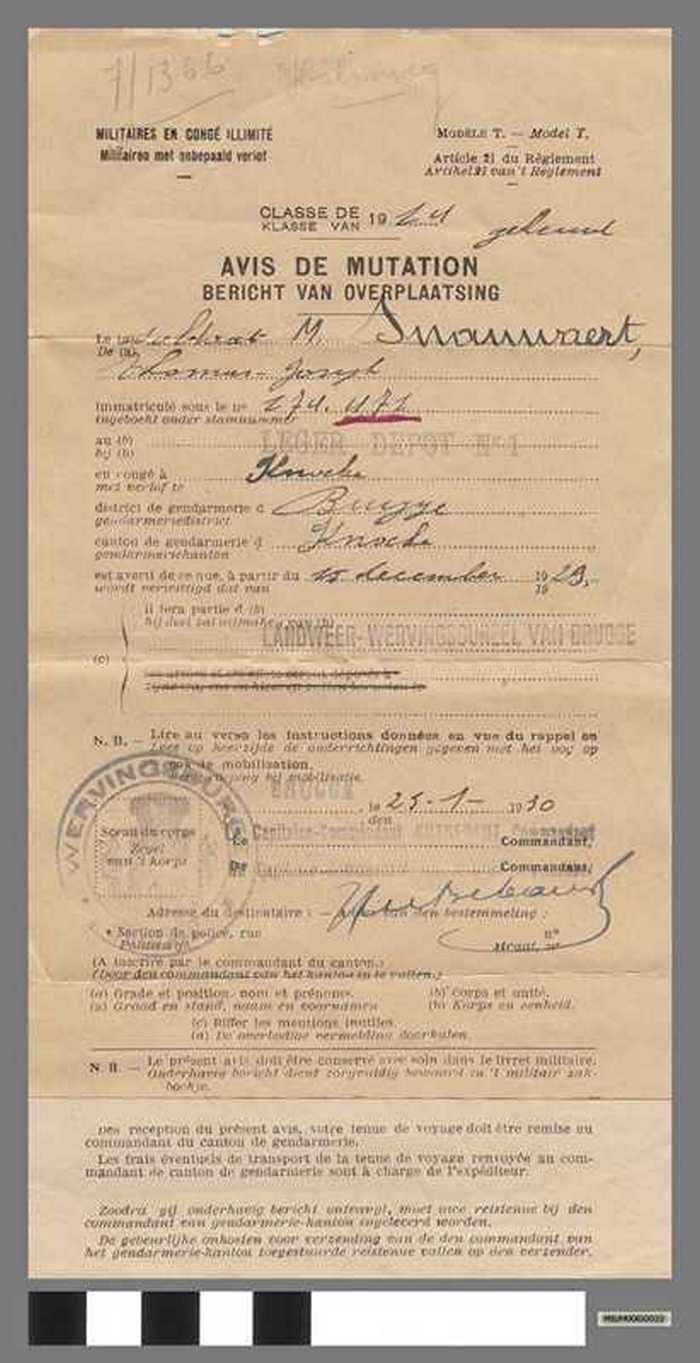 7/1366
MILITAIRES EN CONGÉ ILLIMITÉ
Militairen met onbepaald verlof
MODÈLE T. — Model T.
Article 21 du Règlement
Artikel 21 van't Reglement
CLASSE DE
KLASSE VAN 1924
gehuwd
AVIS DE MUTATION
BERICHT VAN OVERPLAATSING
Le (a) soldaat M. Snauwaert,
De (a),
Thomas Joseph
immatriculé sous le no 174.1172
ingeboekt onder stamnummer
au (b)
bij (b)
LEGER DEPOT No 1
en congé à Knocke
met verlof te
district de gendarmerie d Brugge
gendarmeriedistrict
canton de gendarmerie d Knocke
gendarmeriekanton
est averti de ce que, à partir du 15 december 1929,
wordt verwittigd dat van 19
il fera partie d (b)
hij deel zal uitmaken van (b)
LANDWEER-WERVINGSBUREEL VAN BRUGGE
(c)
N. B. — Lire au verso les instructions données en vue du rappel en
Lees op keerzijde de onderrichtingen gegeven met het oog op
cas de mobilisation.
bij mobilisatie.
WERVINGSBURE
BRUGGE
, le 25-1-1930
den
Sceau du corps
Zegel
van 't korps
Le Capitaine-Commandant Commandant,
De Commandant,
Adresse du destinataire : — den bestemmeling :
* Section de police, rue no
straat, no
(A inscrire par le commandant du canton.)
(Door den commandant van het kanton in te vullen.)
(a) Grade et position, nom et prénoms.
(b) Corps et unité.
(a) Graad en stand, naam en voornamen
(b) Korps en eenheid.
(c) Biffer les mentions inutiles.
(a) De overtollige vermelding doorhalen.
N. B. — Le présent avis doit être conservé avec soin dans le livret militaire.
Onderhavig bericht dient zorgvuldig bewaard in 't militair zak-
boekje.
Dès réception du présent avis, votre tenue de voyage doit être remise au
commandant du canton de gendarmerie.
Les frais éventuels de transport de la tenue de voyage renvoyée au com-
mandant de canton de gendarmerie sont à charge de l'expéditeur.
Zoodra gij onderhavig bericht ontvangt, moet uwe reistenue bij den
commandant van gendarmerie-kanton ingeleverd worden.
De gebeurlijke onkosten voor verzending van de den commandant van
het gendarmerie-kanton toegestuurde reistenue vallen op den verzender.